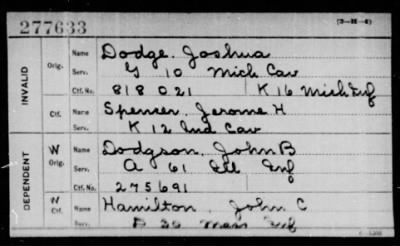 277633
(3-H-6)
INVALID
Orig. Name Dodge, Joshua
Serv. G 10 Mich Cav
Ctf. No. 818021 K 16 Mich Inf
Ctf. Name Spencer, Jerome H
Serv. K 12 Ind Cav
DEPENDENT
W Orig. Name Dodgson, John B
Serv. A 61 Ill Inf
Ctf. No. 275691
W Ctf. Name Hamilton, John C
Serv. Mass Inf